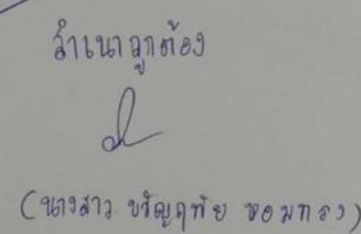 สำเนาถูกต้อง
(นางสาว ขวัญฤทัย หอมทรง)